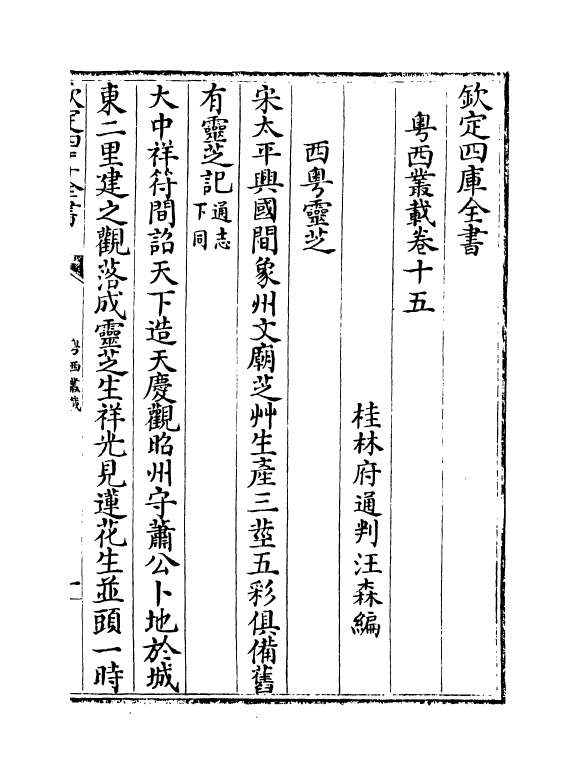 欽定四庫全書
粵西叢載卷十五
桂林府通判汪森編
西粵靈芝
宋太平興國間象州文廟芝艸生產三莖五彩俱備舊
有靈芝記通志下同
大中祥符間詔天下造天慶觀昭州守蕭公卜地於城
東二里建之觀落成靈芝生祥光見蓮花生並頭一時
欽定四庫全書
粵西叢載
一